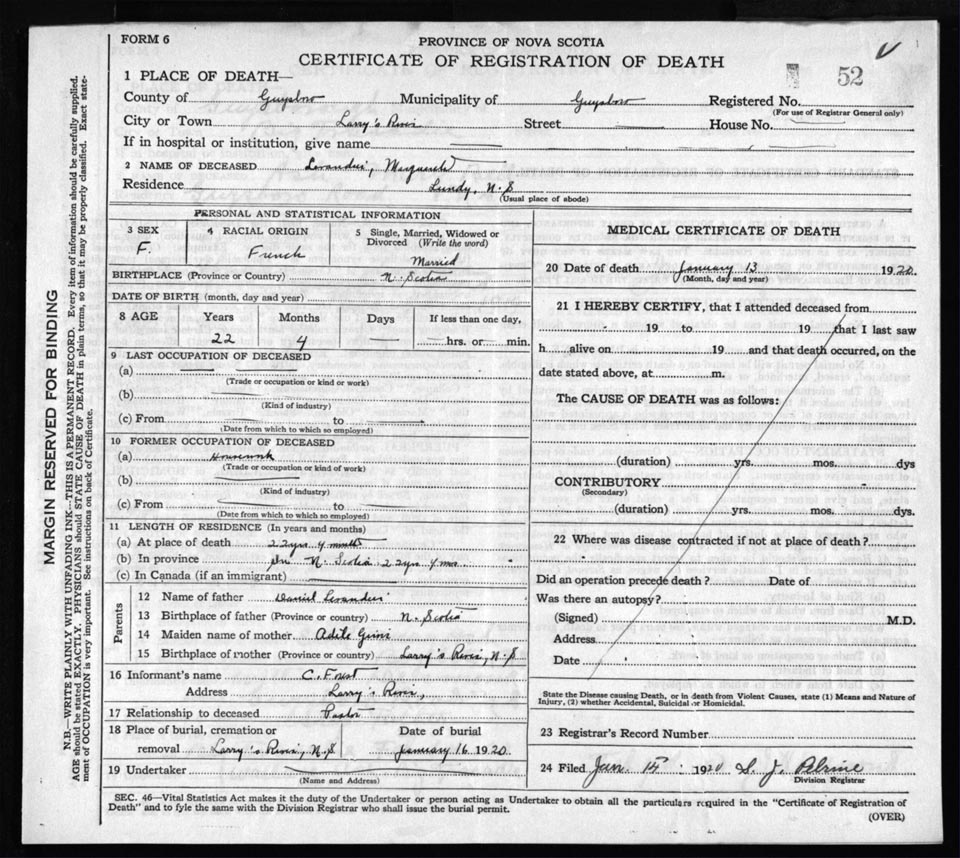 FORM 6
PROVINCE OF NOVA SCOTIA
CERTIFICATE OF REGISTRATION OF DEATH
52
1 PLACE OF DEATH—
County of Guysboro Municipality of Guysboro Registered No.
(For use of Registrar General only)
City or Town Larry's River Street House No.
If in hospital or institution, give name
2 NAME OF DECEASED Marguerite
Residence Lundy, N.S
(Usual place of abode)
PERSONAL AND STATISTICAL INFORMATION
3 SEX
F.
4 RACIAL ORIGIN
French
5 Single, Married, Widowed or Divorced (Write the word)
Married
BIRTHPLACE (Province or Country) N. Scotia
DATE OF BIRTH (month, day and year)
8 AGE Years Months Days If less than one day,
22 4 — hrs. or min.
9 LAST OCCUPATION OF DECEASED
(a)
(Trade or occupation or kind or work)
(b)
(Kind of industry)
(c) From to
(Date from which to which so employed)
10 FORMER OCCUPATION OF DECEASED
(a) Housework
(Trade or occupation or kind of work)
(b)
(Kind of industry)
(c) From to
(Date from which to which so employed)
11 LENGTH OF RESIDENCE (In years and months)
(a) At place of death 22 yrs 4 months
(b) In province In N. Scotia 22 yrs 4 mos
(c) In Canada (if an immigrant)
Parents
12 Name of father Daniel
13 Birthplace of father (Province or country) N. Scotia
14 Maiden name of mother Adile
15 Birthplace of mother (Province or country) Larry's River, N.S
16 Informant's name C. Forest
Address Larry's River,
17 Relationship to deceased Pastor
18 Place of burial, cremation or removal Larry's River, N.S
Date of burial January 16 1920
19 Undertaker
(Name and Address)
MEDICAL CERTIFICATE OF DEATH
20 Date of death January 13 1920
(Month, day and year)
21 I HEREBY CERTIFY, that I attended deceased from
19 to 19 that I last saw
h alive on 19 and that death occurred, on the
date stated above, at m.
The CAUSE OF DEATH was as follows:
(duration) yrs. mos. dys
CONTRIBUTORY
(Secondary)
(duration) yrs. mos. dys.
22 Where was disease contracted if not at place of death?
Did an operation precede death? Date of
Was there an autopsy?
(Signed) M.D.
Address
Date
State the Disease causing Death, or in death from Violent Causes, state (1) Means and Nature of
Injury, (2) whether Accidental, Suicidal or Homicidal.
23 Registrar's Record Number
24 Filed Jan. 15 1920 S. J.
Division Registrar
SEC. 46—Vital Statistics Act makes it the duty of the Undertaker or person acting as Undertaker to obtain all the particulars required in the "Certificate of Registration of
Death" and to fyle the same with the Division Registrar who shall issue the burial permit.
(OVER)
MARGIN RESERVED FOR BINDING
N.B.—WRITE PLAINLY WITH UNFADING INK—THIS IS A PERMANENT RECORD. Every item of information should be carefully supplied.
AGE should be stated EXACTLY. PHYSICIANS should STATE CAUSE OF DEATH in plain terms, so that it may be properly classified. Exact state-
ment of OCCUPATION is very important. See instructions on back of Certificate.